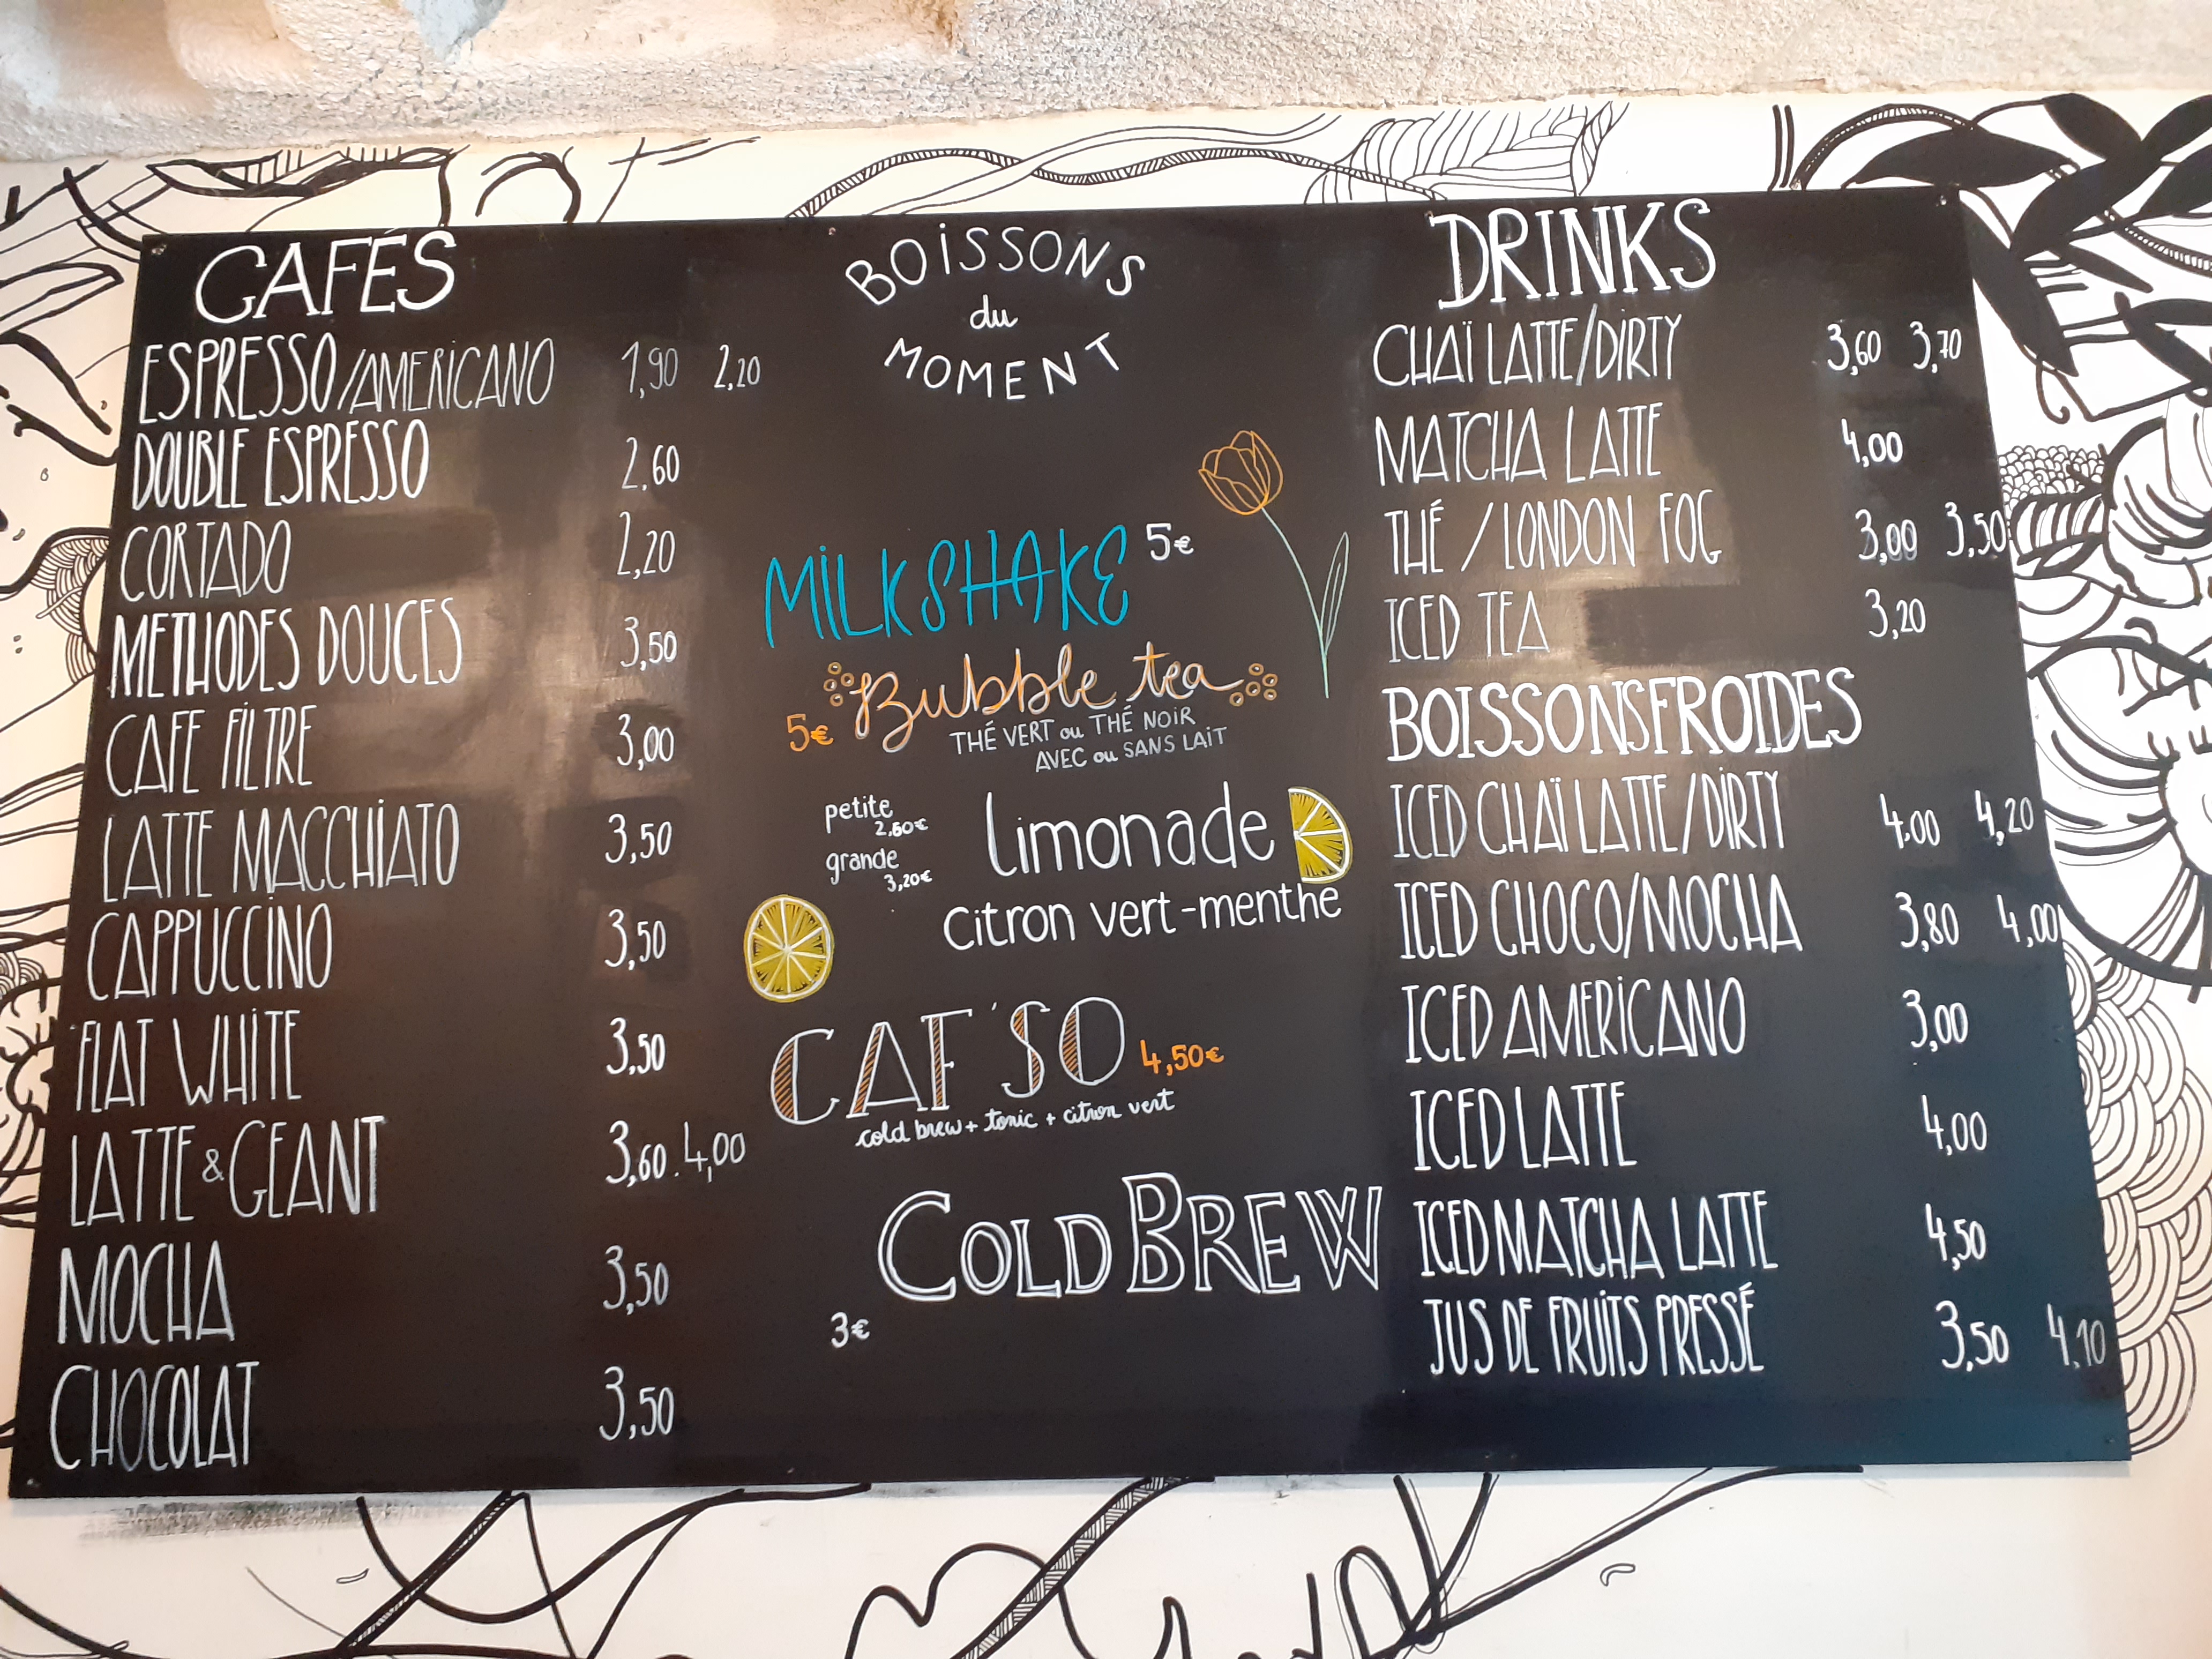 CAFÉS
ESPRESSO/AMERICANO 1,90 2,20
DOUBLE ESPRESSO 2,60
CORTADO 2,20
METHODES DOUCES 3,50
CAFE FILTRE 3,00
LATTE MACCHIATO 3,50
CAPPUCCINO 3,50
FLAT WHITE 3,50
LATTE & GEANT 3,60 . 4,00
MOCHA 3,50
CHOCOLAT 3,50
BOISSONS
du
MOMENT
MILKSHAKE 5€
5€ Bubble tea
THÉ VERT ou THÉ NOIR
AVEC ou SANS LAIT
petite
2,60€
grande
3,20€
Limonade
citron vert-menthe
CAF'SO 4,50€
cold brew + tonic + citron vert
COLD BREW
3€
DRINKS
CHAÏ LATTE/DIRTY 3,60 3,70
MATCHA LATTE 4,00
THÉ / LONDON FOG 3,00 3,50
ICED TEA 3,20
BOISSONS FROIDES
ICED CHAÏ LATTE/DIRTY 4,00 4,20
ICED CHOCO/MOCHA 3,80 4,00
ICED AMERICANO 3,00
ICED LATTE 4,00
ICED MATCHA LATTE 4,50
JUS DE FRUITS PRESSÉ 3,50 4,10